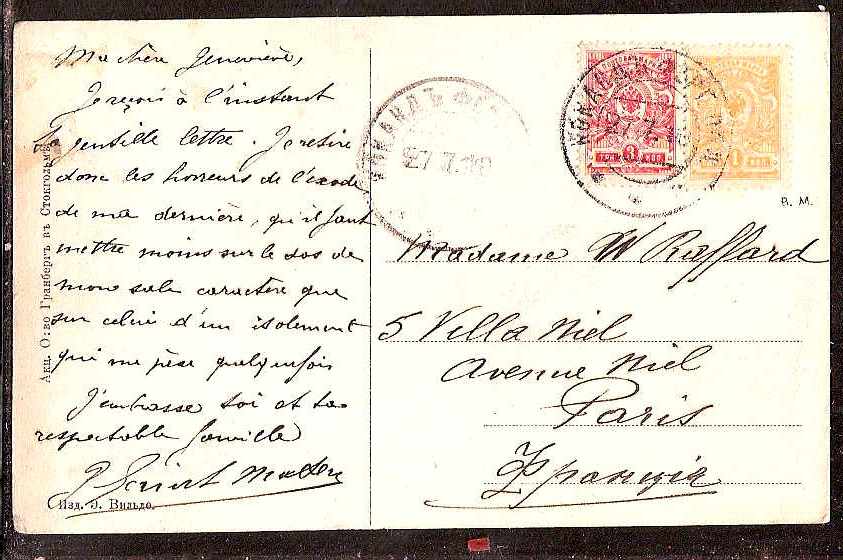 Ma chère Geneviève,
Je reçois à l'instant
ta gentille lettre. Je retire
donc les horreurs de l'exode
de ma dernière, qu'il faut
mettre moins sur le dos de
mon sale caractère que
sur celui d'un isolement
qui me pèse quelquefois
J'embrasse toi et ta
respectable famille
Акц. О:во Гранбергъ въ Стокгольмѣ
Изд. Э. Вильде.
КОКАНДЪ ФЕР
27 7
КОКАНДЪ ФЕРГ
27 7
ПОЧТОВАЯ МАРКА
3
ТРИ КОП
1 КОП
В. М.
Madame W Raffard
5 Villa Niel
Avenue Niel
Paris
Франція